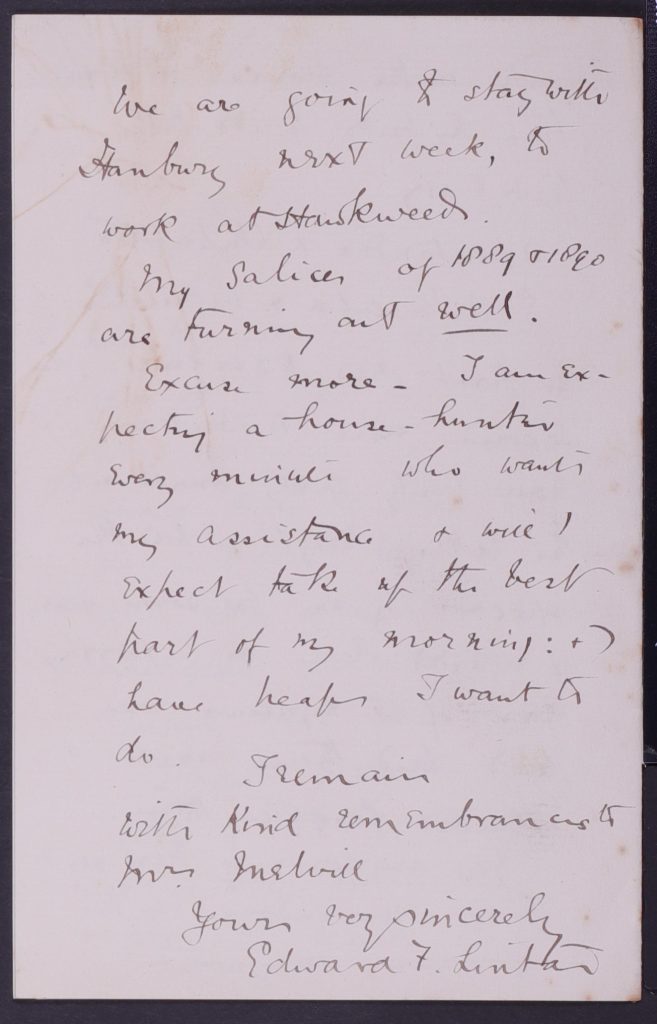 We are going to stay with
Hanbury next week, to
work at Hawkweeds.
My Salices of 1889 & 1890
are turning out well.
Excuse more - I am ex-
pecting a house-hunter
every minute who wants
my assistance & will I
expect take up the best
part of my morning: & I
have heaps I want to
do. I remain
with kind remembrances to
Mrs. Melvill
Yours very sincerely
Edward F. Linton